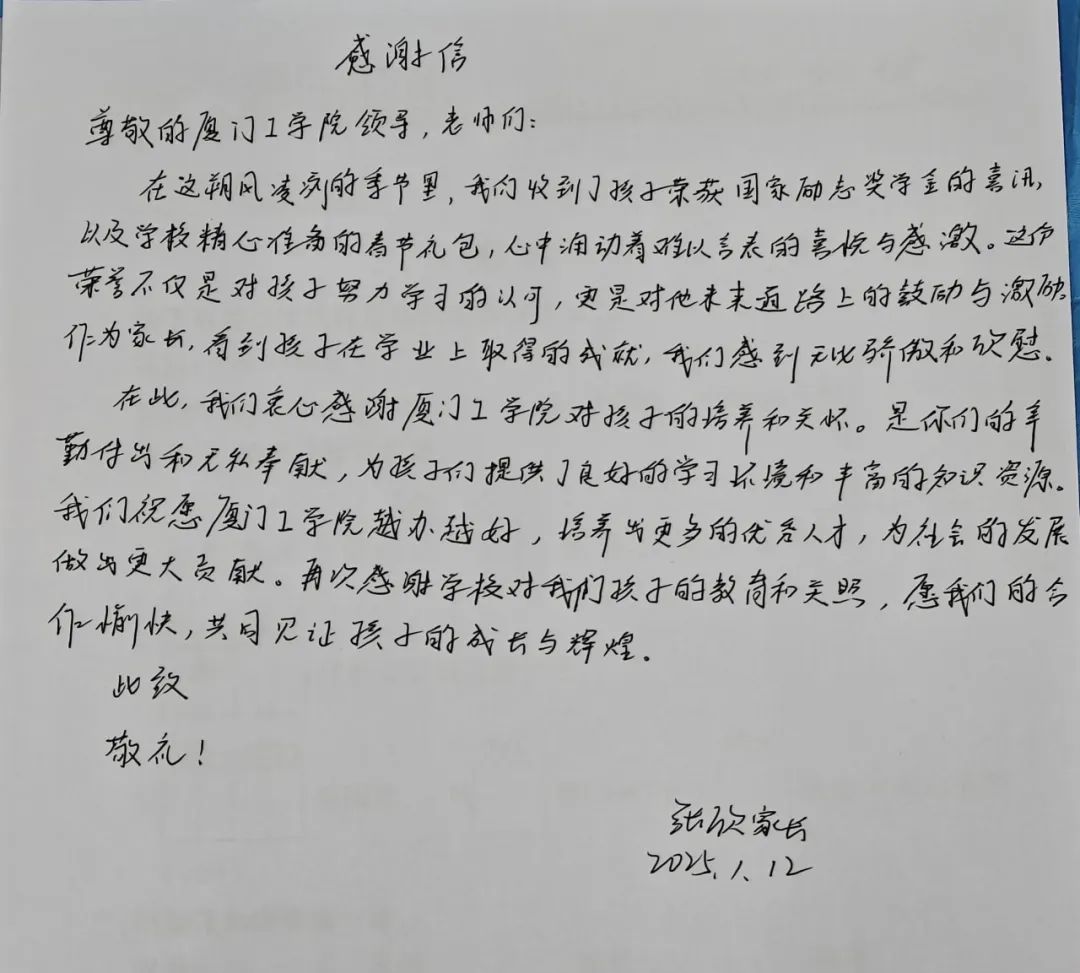 感谢信
尊敬的厦门工学院领导，老师们：
在这朔风凌冽的季节里，我们收到了孩子荣获国家励志奖学金的喜讯，
以及学校精心准备的春节礼包，心中涌动着难以言表的喜悦与感激。这份
荣誉不仅是对孩子努力学习的认可，更是对他未来道路上的鼓励与激励。
作为家长，看到孩子在学业上取得的成就，我们感到无比骄傲和欣慰。
在此，我们衷心感谢厦门工学院对孩子的培养和关怀。是你们的辛
勤付出和无私奉献，为孩子们提供了良好的学习环境和丰富的知识资源。
我们祝愿厦门工学院越办越好，培养出更多的优秀人才，为社会的发展
做出更大贡献。再次感谢学校对我们孩子的教育和关照，愿我们的合
作愉快，共同见证孩子的成长与辉煌。
此致
敬礼！
张欣家长
2025.1.12